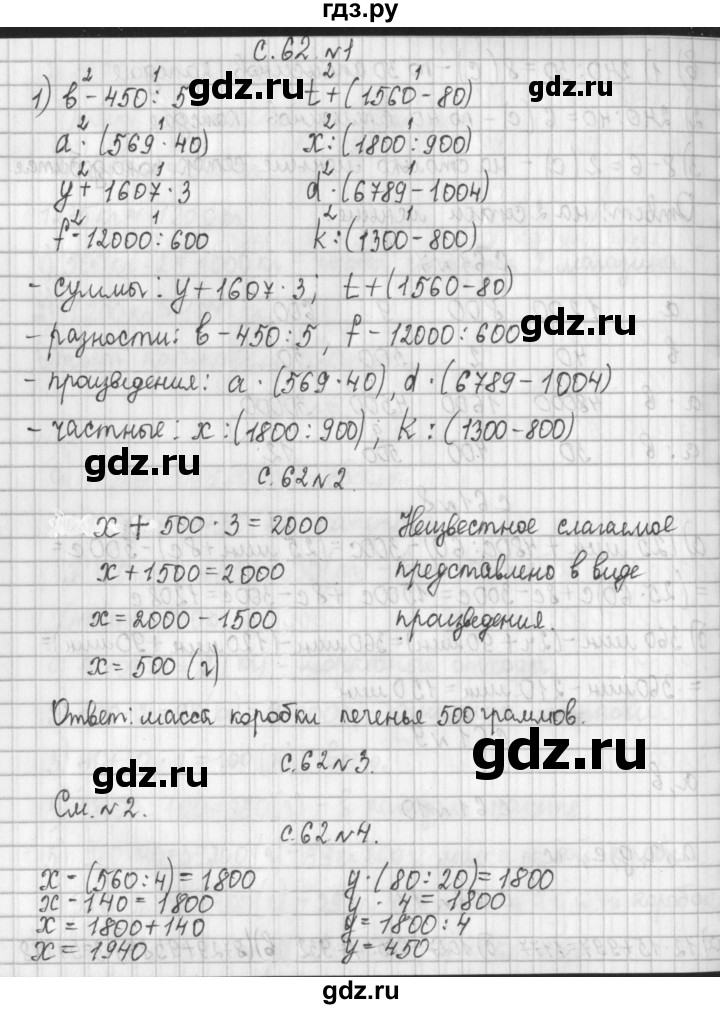 гдз.ру
с.62 №1
2 1 2 1
1) в-450:5 t+(1560-80)
2 1 2 1
а·(569·40) х:(1800:900)
2 1 2 1
у+1607·3 d·(6789-1004)
2 1 2 1
f-12000:600 k:(1300-800)
- суммы: у+1607·3; t+(1560-80)
- разности: в-450:5, f-12000:600
- произведения: а·(569·40), d·(6789-1004)
- частные: х:(1800:900), k:(1300-800)
с.62 №2.
х+500·3=2000 Неизвестное слагаемое
х+1500=2000 представлено в виде
х=2000-1500 произведения.
х=500 (г)
Ответ: масса коробки печенья 500 граммов.
с.62 №3.
См. №2.
с.62 №4.
х-(560:4)=1800 у·(80:20)=1800
х-140=1800 у·4=1800
х=1800+140 у=1800:4
х=1940 у=450
gdz.ru
gdz.ru
gdz.ru
gdz.ru
gdz.ru
gdz.ru
gdz.ru
gdz.ru
gdz.ru